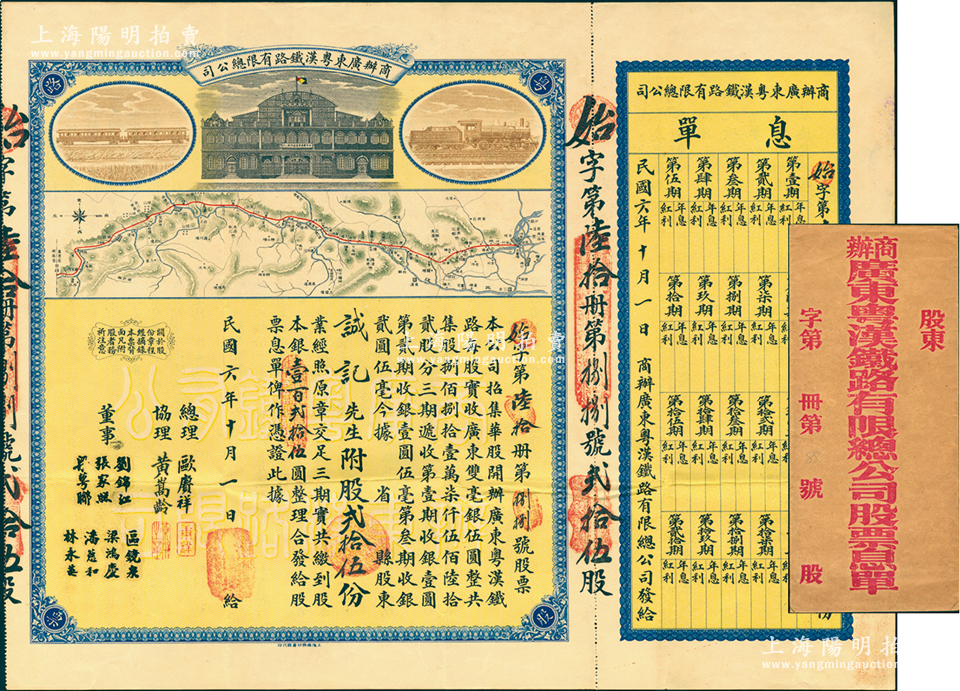 上海陽明拍賣
www.yangmingauction.com
商辦廣東粵漢鐵路有限總公司
粵
路
始字第陸拾册第捌捌號股票
本公司招集華股開辦廣東粵漢鐵
路每股實收廣東雙毫銀伍圓整共
集股捌佰捌拾壹萬柒仟伍佰陸拾
貳股分三期遞收第壹期收銀壹圓
第貳期收銀壹圓伍毫第叁期收銀
貳圓伍毫今據 省 縣股東
誠記 先生附股弍拾伍份
業經照原章交足三期實共繳到股
本銀壹百弍拾伍圓整理合發給股
票息單俾作憑證此據
總理 歐賡祥
協理 黃嵩齡
董事 劉錦江 區鏡泉
張家照 梁鴻慶
潘慈和
林永葵
民國六年十月一日 給
關於股
份章程
經摘錄
本票背
面凡附
股者務
祈注意
始字第陸拾册第捌捌號弍拾伍股
始字第陸拾册第捌捌號弍拾伍股
商辦廣東粵漢鐵路有限總公司
息單
始字第
第壹期 年息 紅利
第貳期 年息 紅利
第叁期 年息 紅利
第肆期 年息 紅利
第伍期 年息 紅利
第柒期 年息 紅利
第捌期 年息 紅利
第玖期 年息 紅利
第拾期 年息 紅利
第拾貳期 年息 紅利
第拾叁期 年息 紅利
第拾肆期 年息 紅利
第拾伍期 年息 紅利
第拾柒期 年息 紅利
第拾捌期 年息 紅利
第拾玖期 年息 紅利
第貳拾期 年息 紅利
民國六年十月一日 商辦廣東粵漢鐵路有限總公司發給
份
股東
商辦廣東粵漢鐵路有限總公司股票息單
字第 册第 號 股
上海陽明拍賣
www.yangmingauction.com